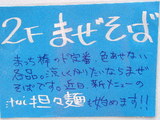 2F まぜそば
まっち棒の定番、色あせない
名品。涼しくなりたいならまぜ
そばです。近日、新メニューの
汁なし担々麺始めます!!